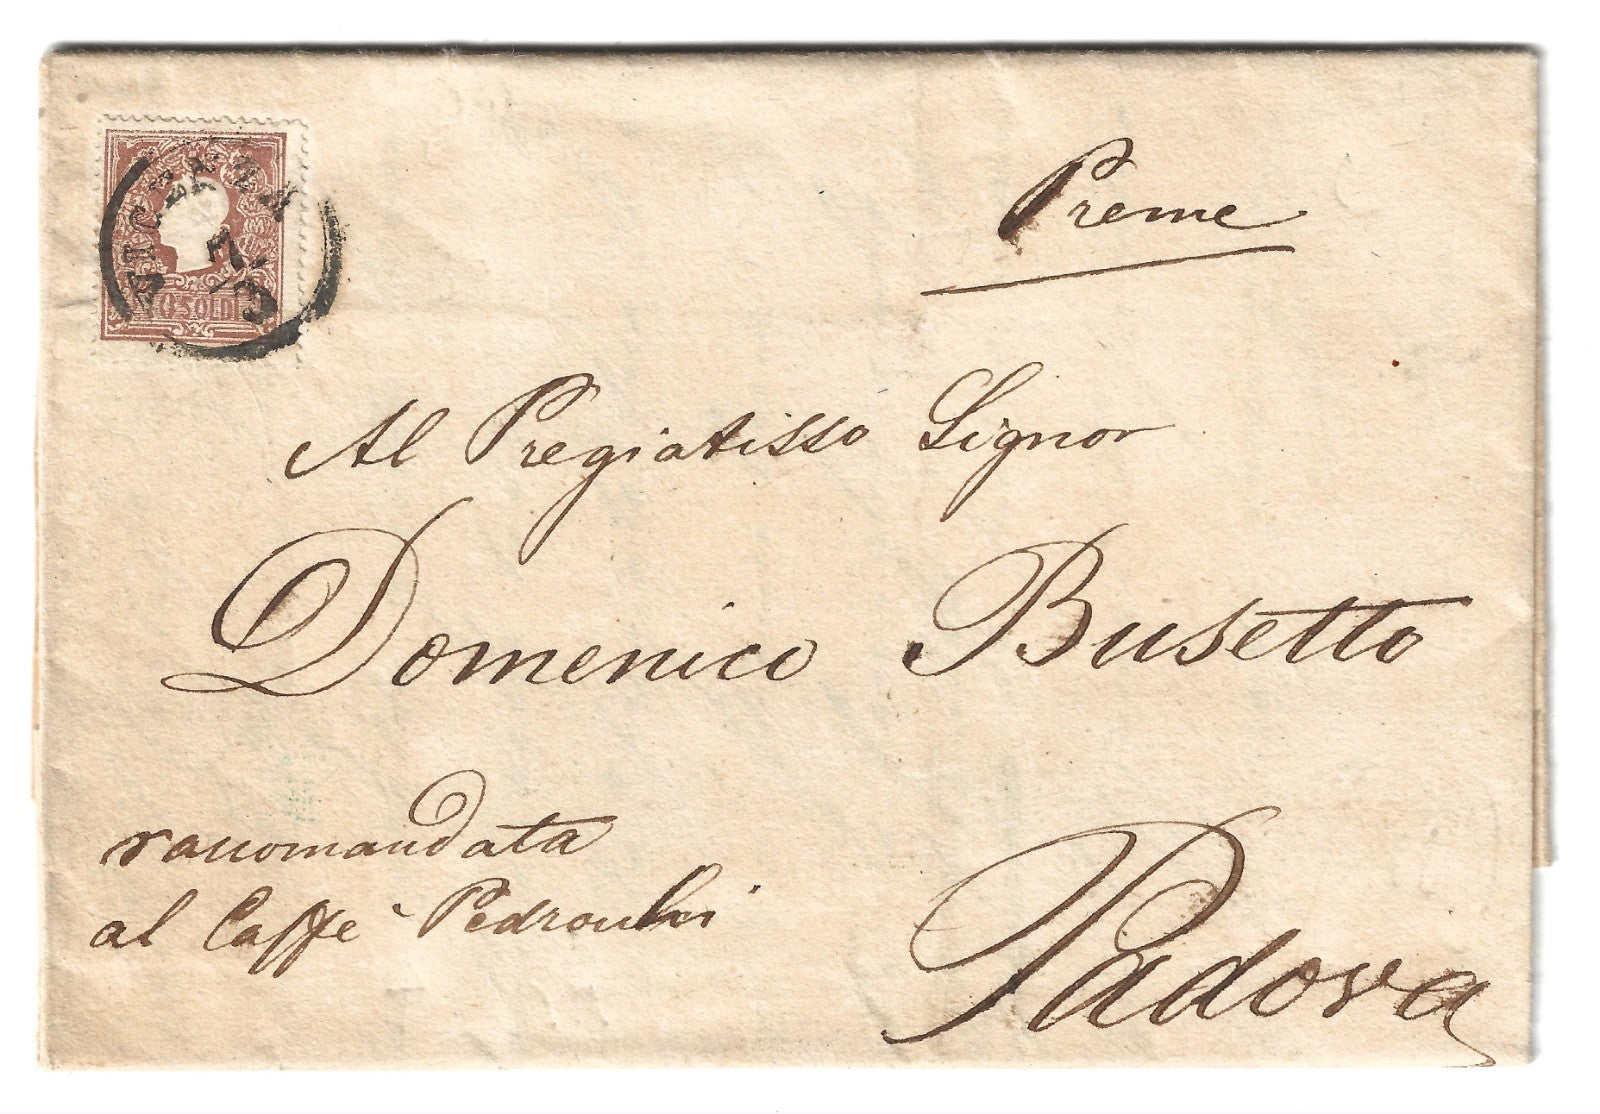 VICENZA
7
3
10 SOLDI
Preme
Al Pregiatisso Signor
Domenico Busetto
raccomandata
al Caffè Pedrocchi
Padova